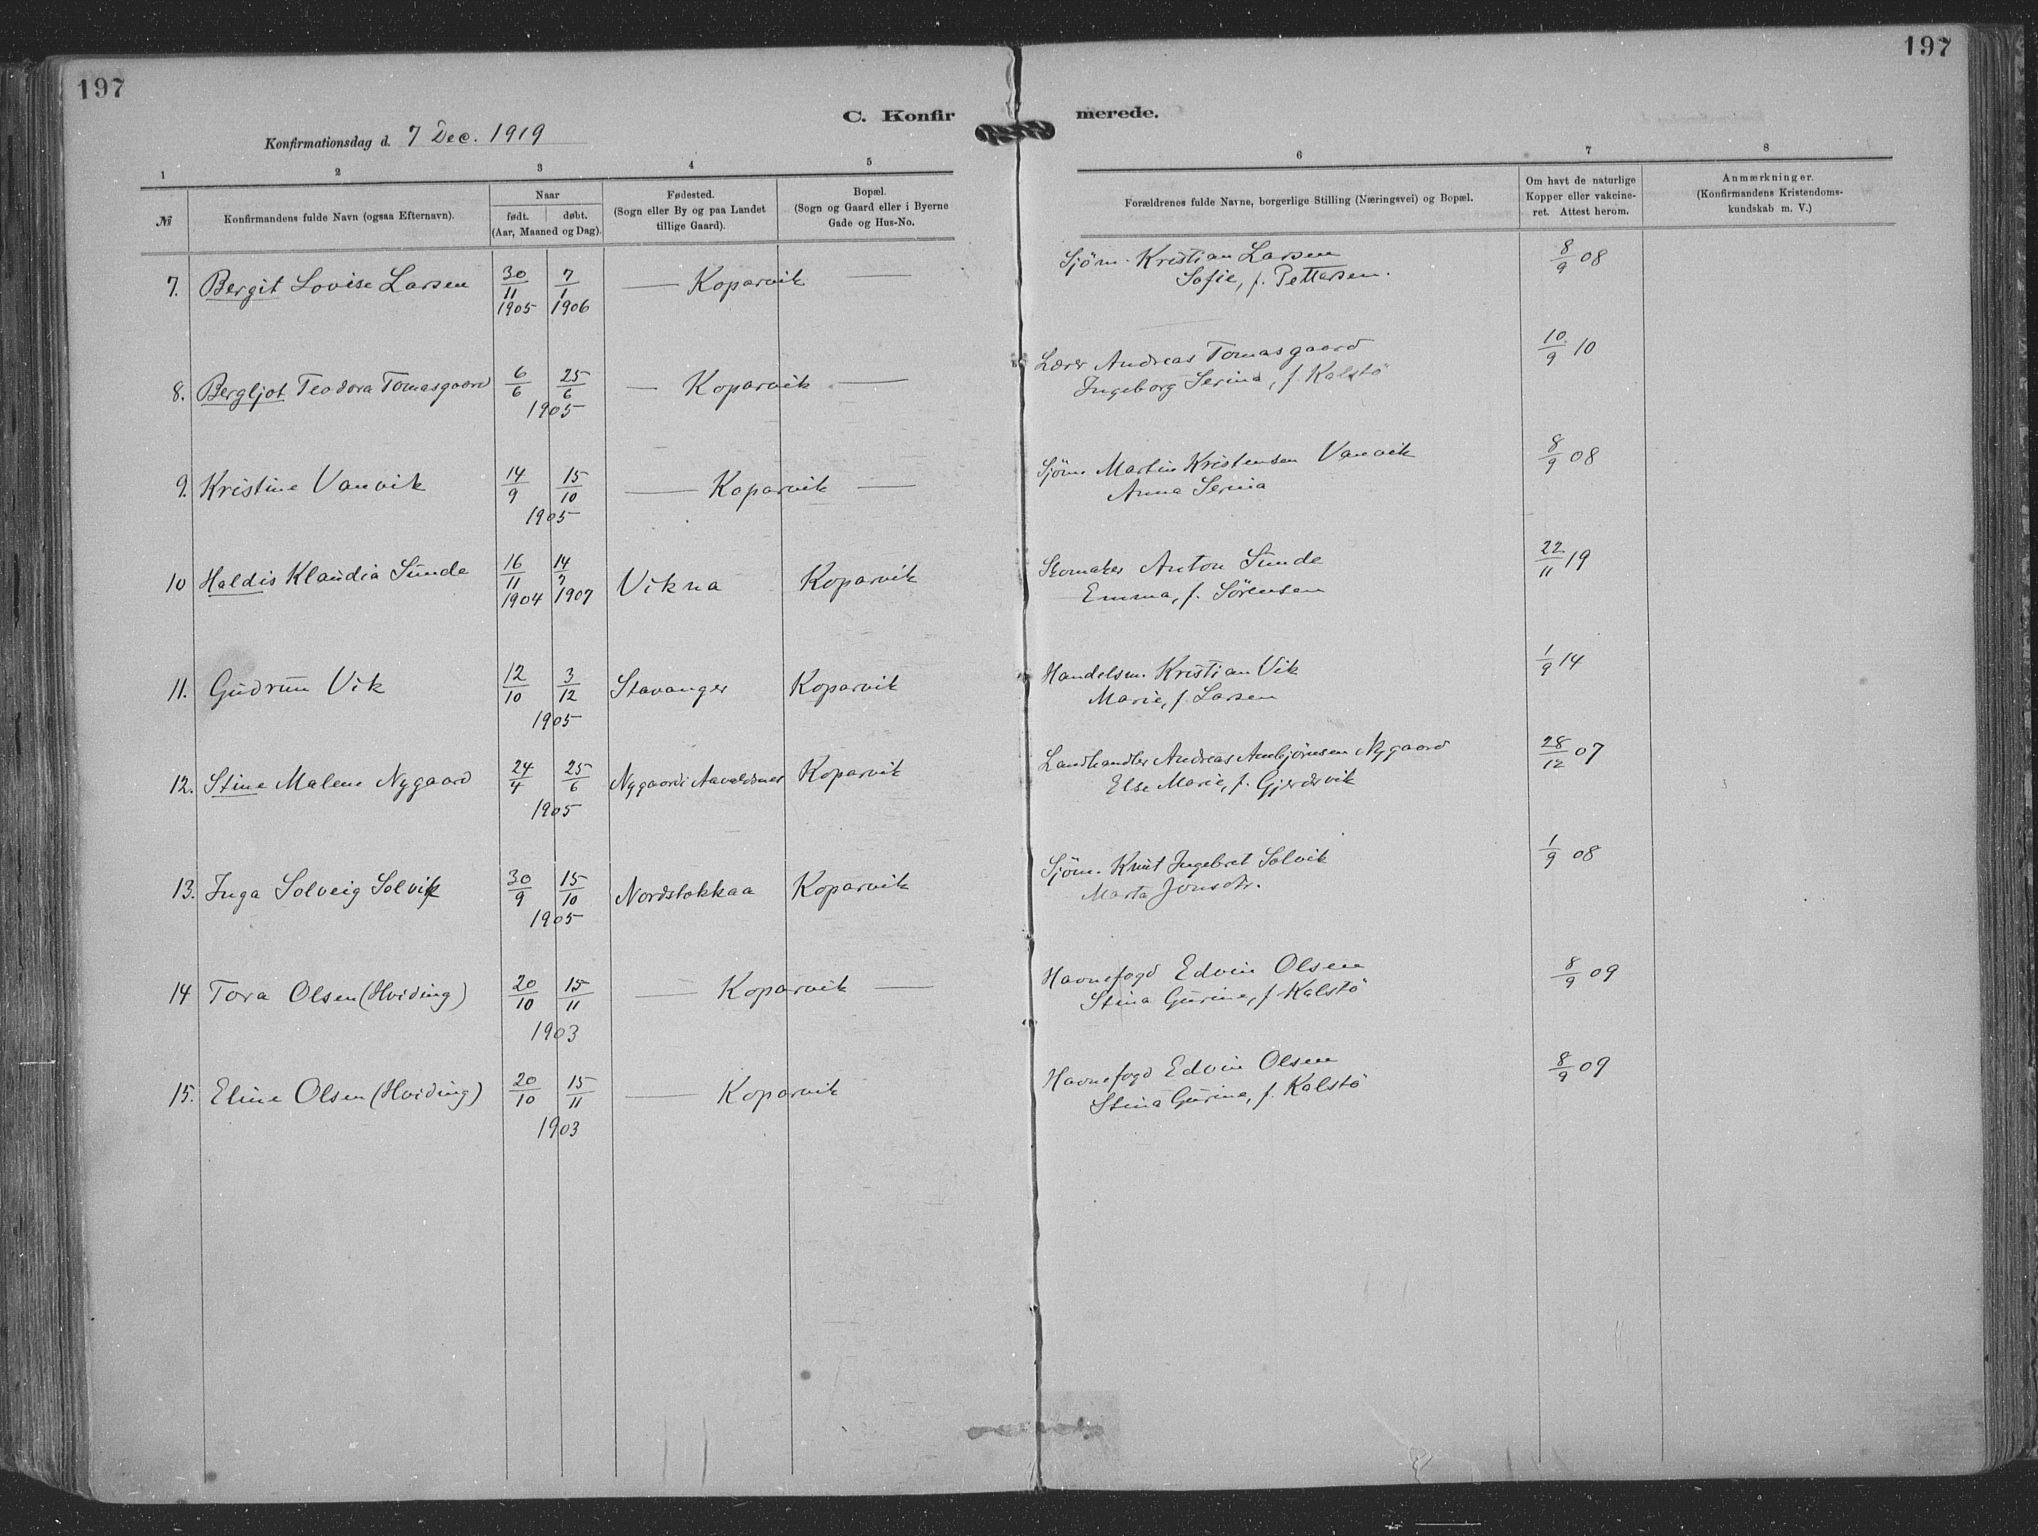 197
197
C. Konfirmerede.
Konfirmationsdag d. 7 Dec. 1919
1 2 3 4 5 6 7 8
№
Konfirmandens fulde Navn (ogsaa Efternavn).
Naar
født. døbt.
(Aar, Maaned og Dag).
Fødested.
(Sogn eller By og paa Landet
tillige Gaard).
Bopæl.
(Sogn og Gaard eller i Byerne
Gade og Hus-No.
Forældrenes fulde Navne, borgerlige Stilling (Næringsvei) og Bopæl.
Om havt de naturlige
Kopper eller vakcine-
ret. Attest herom.
Anmærkninger.
(Konfirmandens Kristendoms-
kundskab m. V.)
7. Bergit Lovise Larsen 30/11 1905 7/1 1906 — Koparvik — Sjøm. Kristian Larsen 8/9 08
Sofie, f. Pettersen.
8. Bergljot Teodora Tomasgaard 6/6 25/6 1905 — Koparvik — Lærer Andreas Tomasgaard 10/9 10
Ingeborg Serina, f. Kalstö
9. Kristine Vanvik 14/9 15/10 1905 — Koparvik — Sjöm. Martin Kristensen Vanvik 8/9 08
Anna Serina
10 Haldis Klaudia Sunde 16/11 1904 14/7 1907 Vikna Koparvik Skomaker Anton Sunde 22/11 19
Emma, f. Sörensen
11. Gudrun Vik 12/10 3/12 1905 Stavanger Koparvik Handelsm. Kristian Vik 1/9 14
Marie, f. Larsen
12. Stine Malene Nygaard 24/4 25/6 1905 Nygaard i Aavaldsnes Koparvik Landhandler Andreas Ambjörnsen Nygaard 28/12 07
Else Marie, f. Gjerdevik
13. Inga Solveig Solvik 30/9 15/10 1905 Nordstokkaa Koparvik Sjöm. Knut Ingebret Solvik 1/9 08
Marta Jonsdtr.
14 Tora Olsen (Hviding) 20/10 15/11 1903 — Koparvik — Havnefogd Edvin Olsen 8/9 09
Stina Gurine, f. Kalstö
15. Eline Olsen (Hviding) 20/10 15/11 1903 — Koparvik Havnefogd Edvin Olsen 8/9 09
Stina Gurine, f. Kalstö